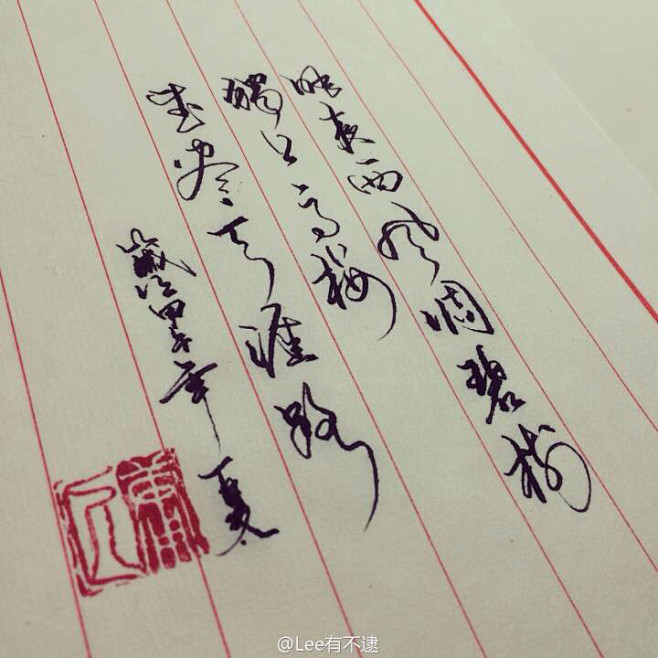 昨夜西风凋碧树
獨上高楼
望尽天涯路
歲次甲午年 夏
@Lee有不逮